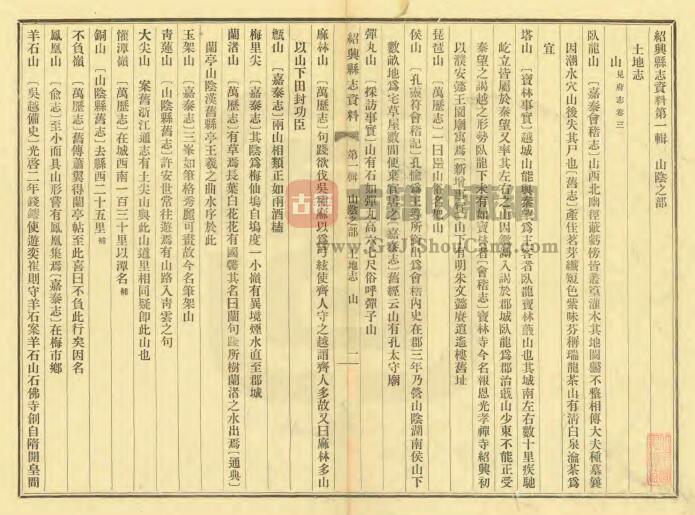 紹興縣志資料第一輯　山陰之部
土地志
山 見府志卷三
臥龍山　〔嘉泰會稽志〕山西北幽徑蔽虧傍皆叢篁灌木其地閴不整相傳大夫種墓𨽻
因潮水穴山後失其尸也〔舊志〕產佳茗芽纖短色紫味芬稱瑞龍茶山有清白泉瀹茶爲
宜
塔山　〔寶林事實〕越城山能與秦望爲主客者臥龍寶林蕺山也其城南左右數十里疾馳
屹立皆屬於秦望又率其左右之
秦望之謁越之形勢臥龍下來有如寶林者〔會稽志〕寶林寺今名報恩光孝禪寺紹興初
以濮安懿王園廟寓焉〔新
山有明朱文懿賡逍遙樓舊址
琵琶山　〔萬歷志〕一曰
侯山　〔孔靈符會稽記〕孔愉
爲會稽內史在郡三年乃營山陰湖南侯山下
數畝地爲宅草屋數間便棄官居之〔嘉泰志〕舊經云山有孔太守廟
彈丸山　〔採訪事實〕山有石如彈丸高六七尺俗呼彈子山
紹興縣志資料　第一輯　山陰之部　土地志　山　一
麻林山　〔萬歷志〕句踐欲伐吳種麻以爲弓絃使齊人守之越謂齊人多故又曰麻林多山
以山下田封功臣
甑山　〔嘉泰志〕兩山相類正如兩酒榼
梅里尖　〔嘉泰志〕其陰爲梅仙塢自塢度一小嶺有異境煙水直至郡城
蘭渚山　〔萬歷志〕有草焉長葉白花花有國馨其名曰蘭句踐所樹蘭渚之水出焉〔通典〕
蘭亭山陰漢舊縣亭王羲之曲水序於此
玉架山　〔嘉泰志〕三峯如筆格秀麗可畫故今名筆架山
青蓮山　〔山陰縣舊志〕許安世常往遊焉有山路入靑雲之句
大尖山　案舊浙江通志有土尖山與此山道里相同疑卽此山也
懽潭嶺　〔萬歷志〕在城西南一百三十里以潭名 補
銅山　〔山陰縣舊志〕去縣西二十五里 補
不負嶺　〔萬歷志〕舊傳蕭翼得蘭亭帖至此喜曰不負此行矣因名
鳳凰山　〔俞志〕至小而具山形嘗有鳳凰集焉〔嘉泰志〕在梅市鄉
羊石山　〔吳越備史〕光啓二年錢鏐使遊奕崔則守羊石案羊石山石佛寺創自隋開皇間
古籍收藏網
www.GuJiShouCang.com